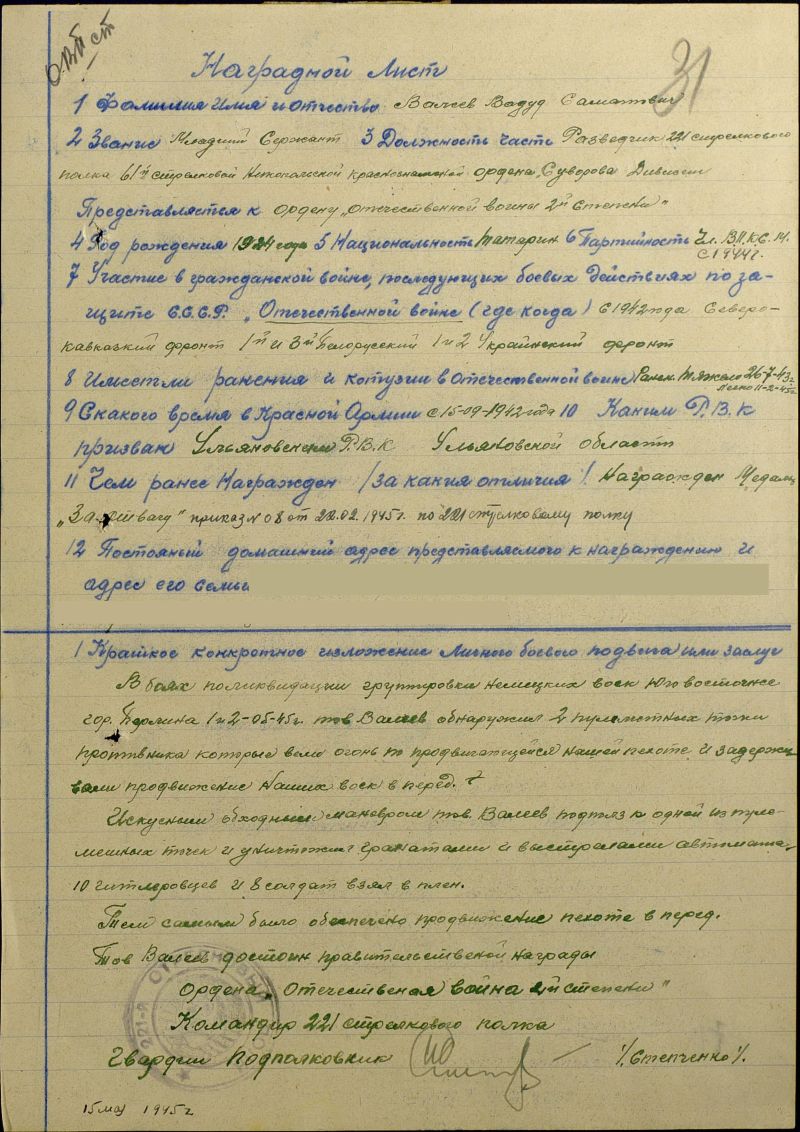 О.В.II ст
31
Наградной Лист
1 Фамилия Имя и Отчество Валеев Вадуд Саматович
2 Звание Младший Сержант 3 Должность часть Разведчик 221 стрелкового
полка 61й стрелковой Никопольской краснознаменой ордена "Суворова Дивизии
Представляется к ордену "Отечественной войны 2й степени"
4 Год рождения 1924 года 5 Национальность Татарин 6 Партийность Чл. В.П.К.С.М.
с 1944 г.
7 Участие в гражданской войне, последующих боевых действиях по за-
щите С.С.С.Р. "Отечественной войне (где когда) с 1942 года Северо-
кавказкий фронт 1й и 3й Белорусский 1 и 2 Украинский фронт
8 Имеет ли ранения и котузии в Отечественной войне Ранен. Тяжело 26-7-43г
легко 11-2-45г
9 Скакого время в Красной Армии с 15-09-1942 года 10 Каким Р.В.К
призван Ульяновским Р.В.К Ульяновской области
11 Чем ранее Награжден /за какия отличия/. Награжден Медаль
"За отвагу" приказ № 08 от 22.02.1945г. по 221 стрелковому полку
12 Постояный домашний адрес представляемого к награждению и
адрес его семьи
1 Краткое конкротное изложение Личного боевого подвига или заслуг
В боях поликвидации группировки немецких воск Юго восточнее
гор. Берлина 1 и 2-05-45г. тов Валеев обнаружил 2 пулеметных точки
противника которые вели огонь по продвигающейся нашей пехоте и задержи
вали продвижение Наших воск в перед.
Искусным обходным маневром тов. Валеев подполз к одной из пуле-
метных точек и уничтожил гранатами и выстрелами автомата
10 гитлеровцев и 8 солдат взял в плен.
Тем самым было обеспечено продвижение пехоте в перед.
Тов Валеев достоин правительственой награды
Ордена "Отечественая война 2й степени"
Командир 221 стрелкового полка
Гвардии Подполковник /.Степченко/.
15 мая 1945г